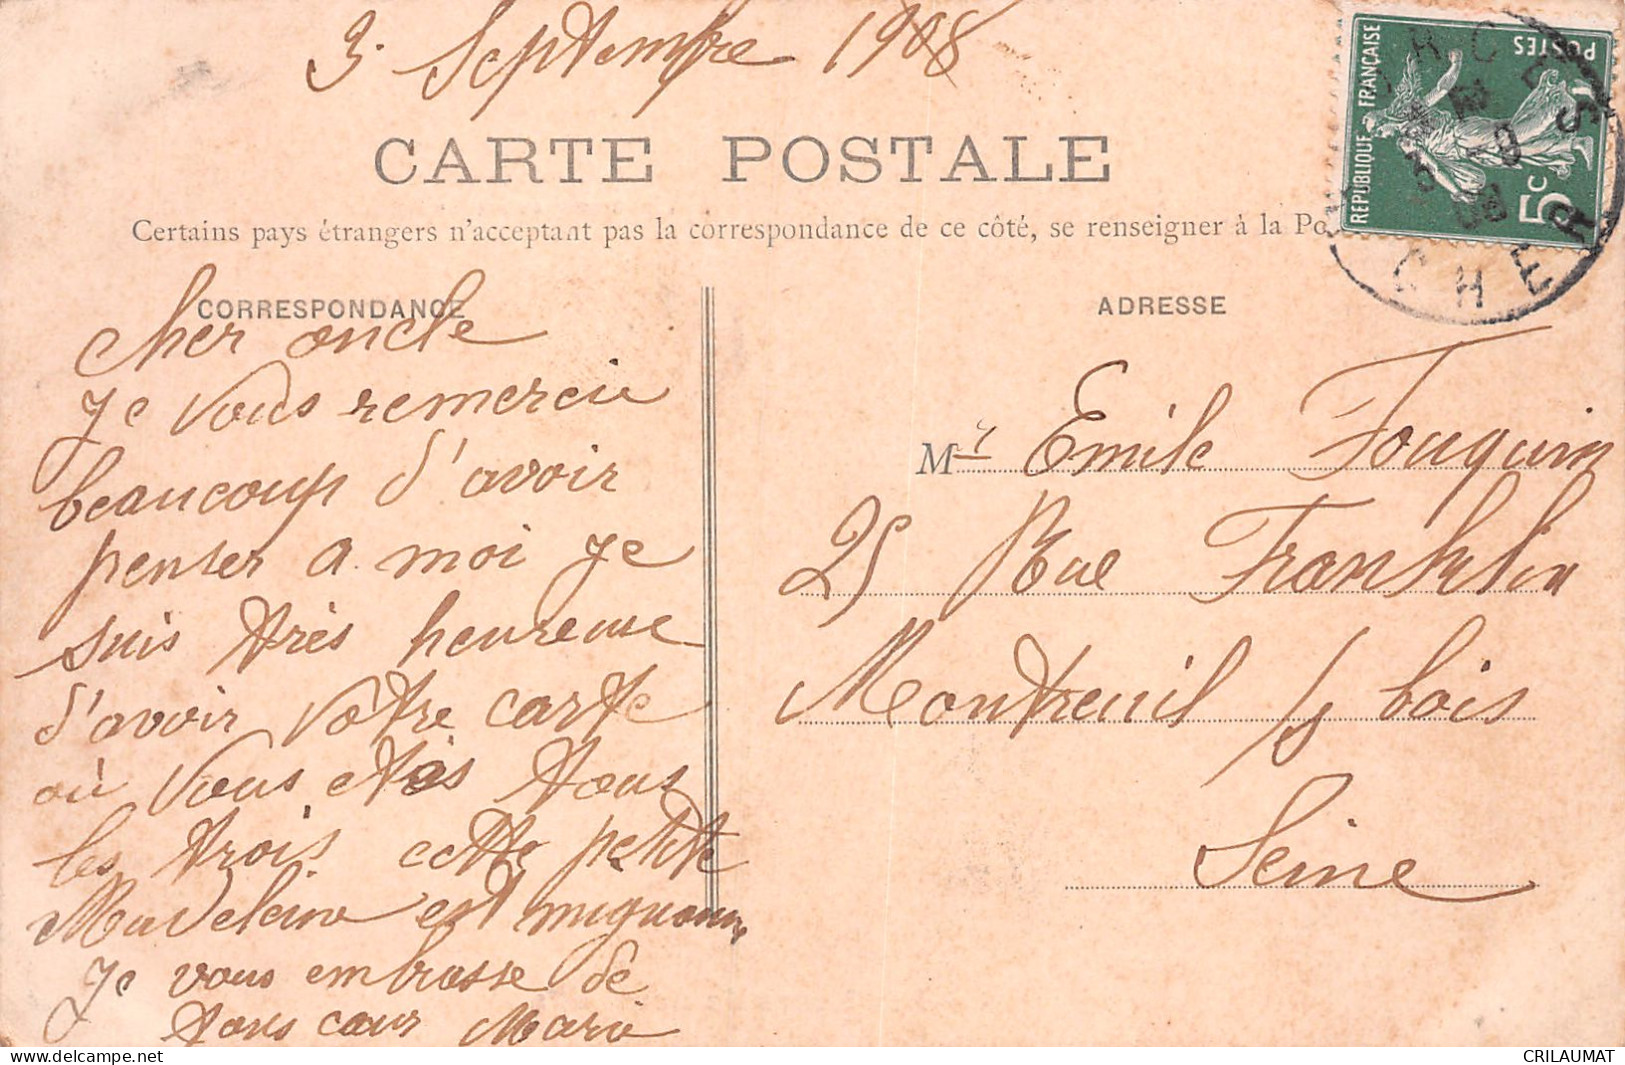 3. Septembre 1908
CARTE POSTALE
Certains pays étrangers n'acceptant pas la correspondance de ce côté, se renseigner à la Po
RÉPUBLIQUE FRANÇAISE
POSTES
5c
CHER
CORRESPONDANCE
cher oncle
je vous remercie
beaucoup d'avoir
penser a moi je
suis très heureuse
d'avoir votre carte
où vous etês tous
les trois cette petite
Madeleine est mignonne
Je vous embrasse de
tous cœur Marie
ADRESSE
Mr Emile Fouquin
25 Rue Franklin
Montreuil s/ bois
Seine
CRILAUMAT